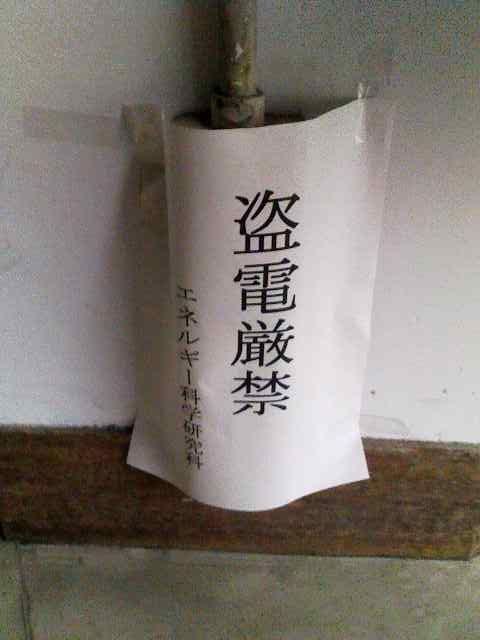 盗電厳禁
エネルギー科学研究科